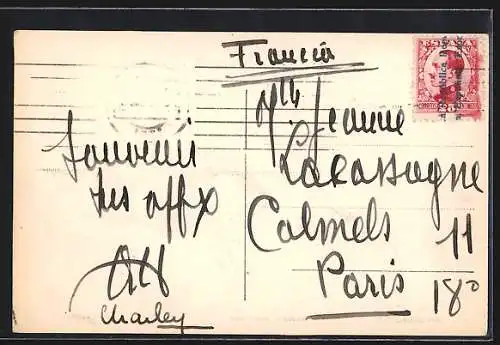 Francia
Souvenir
très affx
Charley
Mlle Jeanne
Lacassagne
Calmels 11
Paris 18º